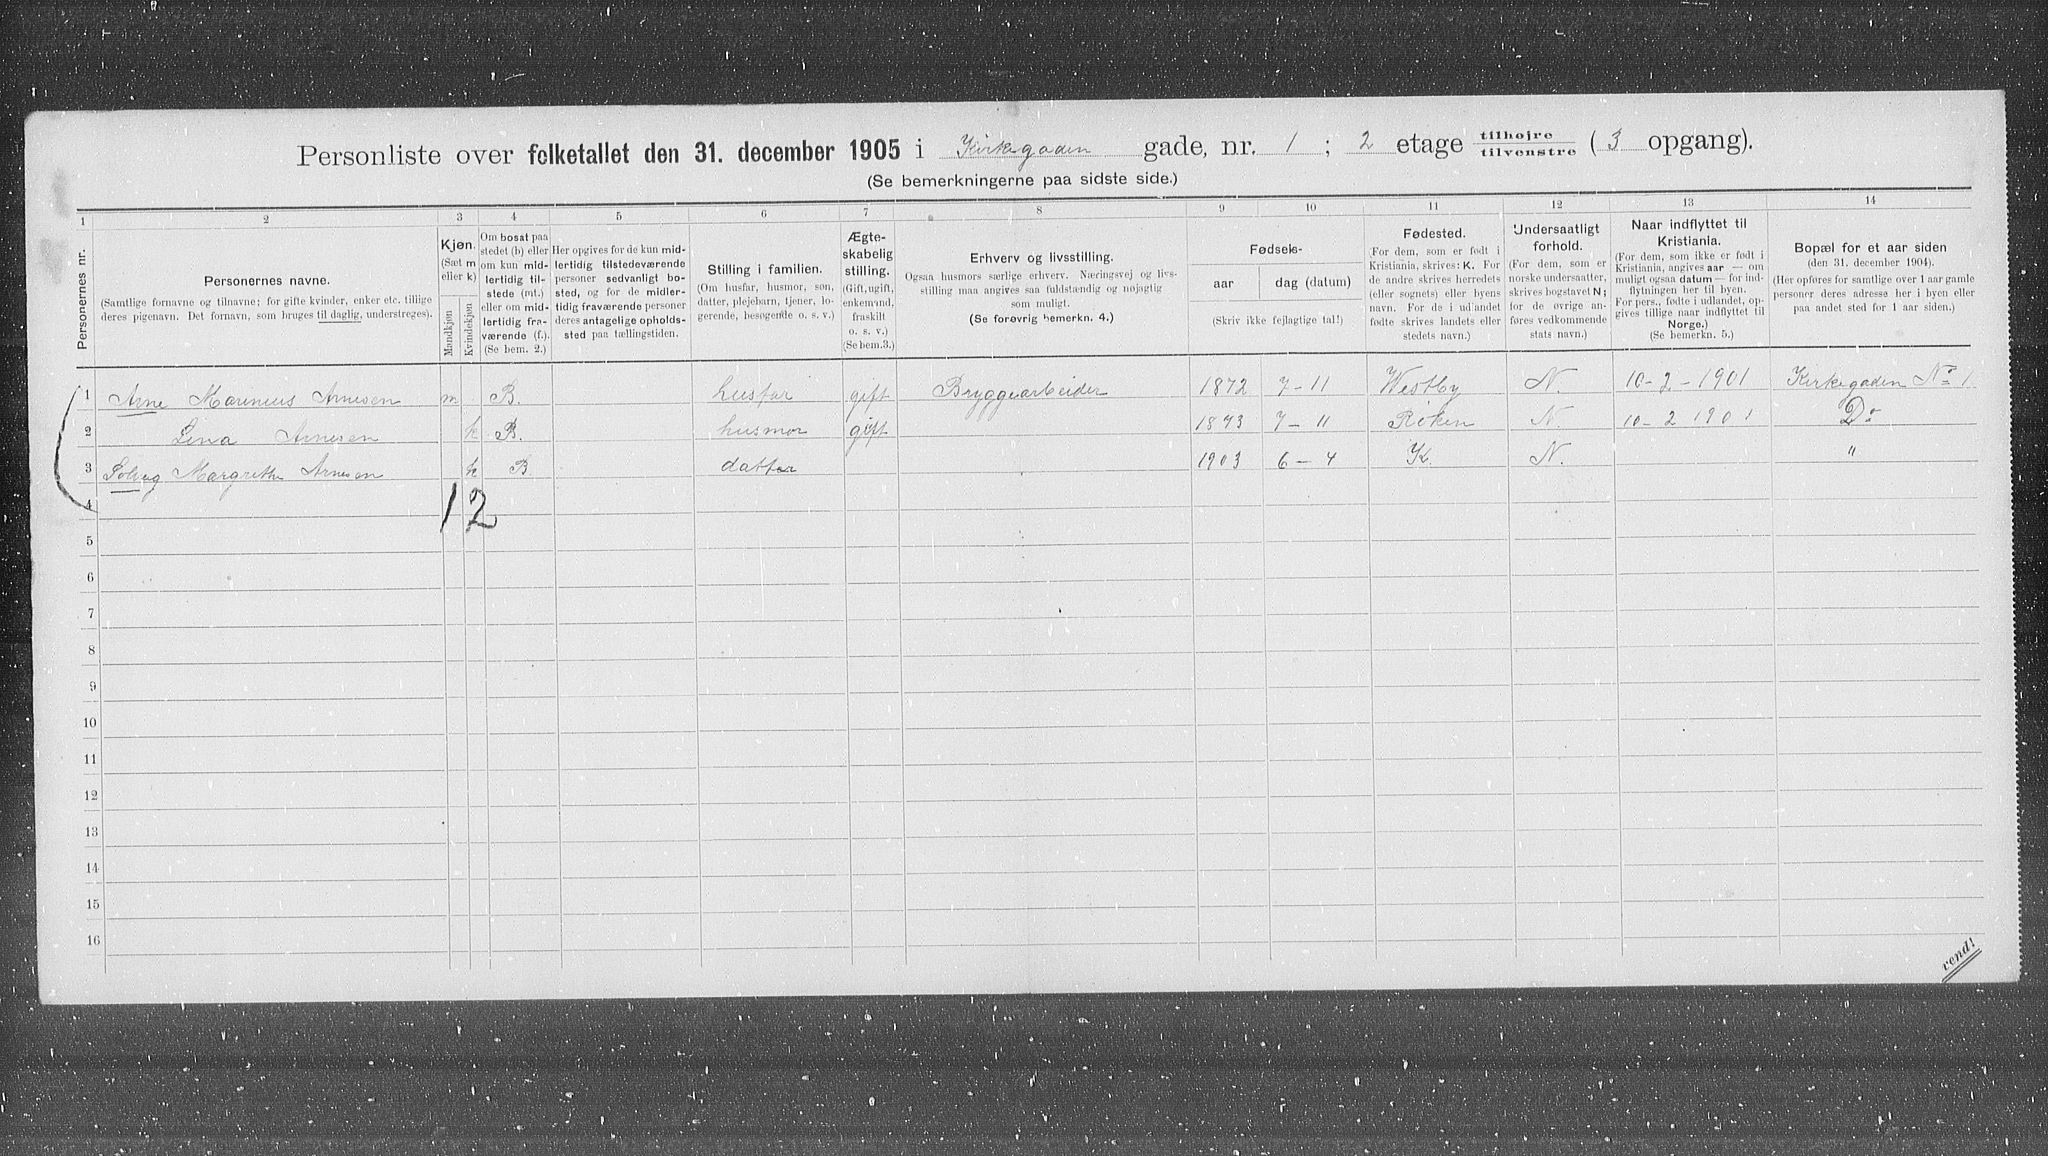 Personliste over folketallet den 31. december 1905 i Kirkegaden gade, nr. 1 ; 2 etage tilhøjre tilvenstre ( 3 opgang).
(Se bemerkningerne paa sidste side.)
1 2 3 4 5 6 7 8 9 10 11 12 13 14
Personernes nr.
Personernes navne.
(Samtlige fornavne og tilnavne; for gifte kvinder, enker etc. tillige
deres pigenavn. Det fornavn, som bruges til daglig, understreges).
Kjøn.
(Sæt m
eller k)
Mandkjøn
Kvindekjøn
Om bosat paa
stedet (b) eller
om kun mid-
lertidig til-
stede (mt.)
eller om mid-
lertidig fra-
værende (f.).
(Se bem. 2.)
Her opgives for de kun mid-
lertidig tilstedeværende
personer sedvanligt bo-
sted, og for de midler-
tidig fraværende personer
deres antagelige opholds-
sted paa tællingstiden.
Stilling i familien.
(Om husfar, husmor, søn,
datter, plejebarn, tjener, lo-
gerende, besøgende o. s. v.)
Ægte-
skabelig
stilling.
(Gift, ugift,
enkemand,
fraskilt
o. s. v.)
(Se bem.3.)
Erhverv og livsstilling.
Ogsaa husmors særlige erhverv. Næringsvej og livs-
stilling maa angives saa fuldstændig og nøjagtig
som muligt.
(Se forøvrig bemerkn. 4.)
Fødsels-
aar dag (datum)
(Skriv ikke fejlagtige tal!)
Fødested.
(For dem, som er født i
Kristiania, skrives: K. For
de andre skrives herredets
(eller sognets) eller byens
navn. For de i udlandet
fødte skrives landets eller
stedets navn.)
Undersaatligt
forhold.
(For dem, som er
norske undersaatter,
skrives bogstavet N;
for de øvrige an-
føres vedkommende
stats navn.)
Naar indflyttet til
Kristiania.
(For dem, som ikke er født i
Kristiania, angives aar — om
muligt ogsaa datum — for ind-
flytningen her til byen.
For pers., fødte i udlandet, op-
gives tillige naar indflyttet til
Norge.)
(Se bemerkn. 5.)
Bopæl for et aar siden
(den 31. december 1904).
(Her opføres for samtlige over 1 aar gamle
personer deres adresse her i byen eller
paa andet sted for 1 aar siden.)
1 Arne Marinius Arnesen m B. husfar gift Bryggearbeider 1872 7-11 Westby N. 10-2-1901 Kirkegaden No 1
2 Lina Arnesen k B. husmor gift 1873 7-11 Røken N. 10-2 1901 Do
3 Solveg Margrethe Arnesen k B datter 1903 6-4 K. N. "
4 1 2
5
6
7
8
9
10
11
12
13
14
15
16
vend!